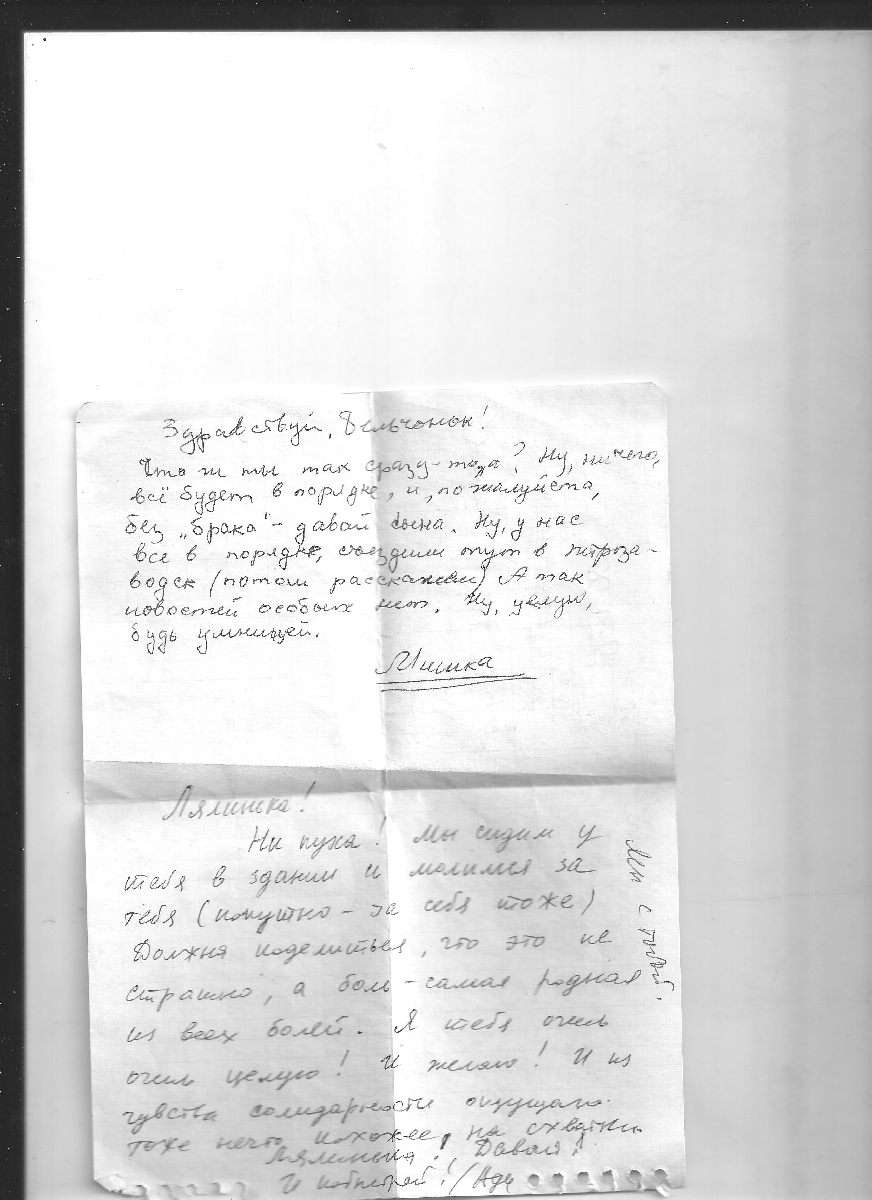 Здравствуй, Бельчонок!
Что ж ты так сразу-то? Ну, ничего,
всё будет в порядке, и, пожалуйста,
без „брака" - давай сына. Ну, у нас
все в порядке, съездили тут в Петроза-
водск (потом расскажем) А так
новостей особых нет. Ну, целую,
будь умницей.
Мишка
Лялишка!
Ни пуха! Мы сидим у
тебя в здании и молимся за
тебя (попутно - за себя тоже)
Должна поделиться, что это не
страшно, а боль - самая родная
из всех болей. Я тебя очень
очень целую! И желаю! И из
чувства солидарности ощущаю
тоже нечто похожее на схватки.
Лялинька! Давай!
И побыстрей!
с тобой.